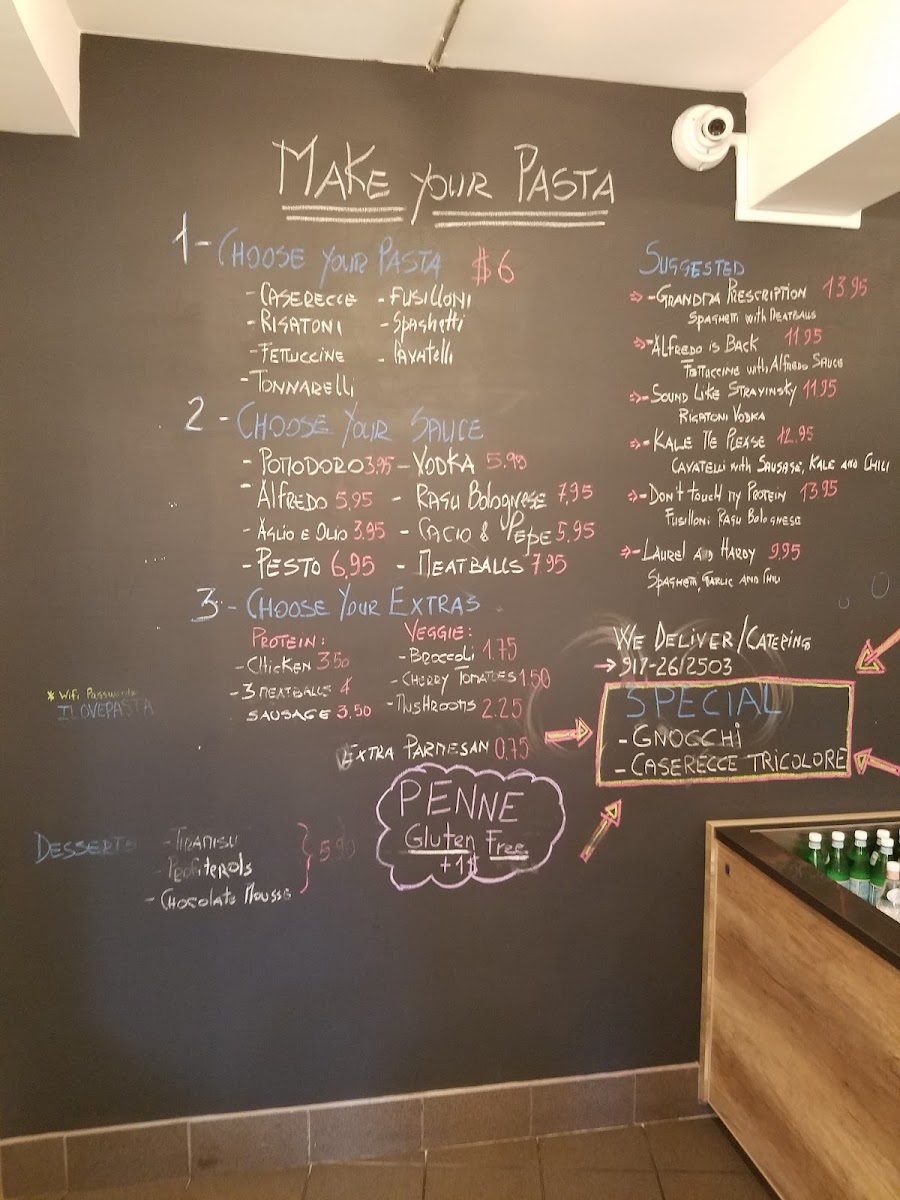 MAKE YOUR PASTA
1 - CHOOSE YOUR PASTA $6
- CASERECCE - FUSILLONI
- RIGATONI - SPAGHETTI
- FETTUCCINE - CAVATELLI
- TONNARELLI
2 - CHOOSE YOUR SAUCE
- POMODORO 3.95 - VODKA 5.99
- ALFREDO 5,95 - RAGU BOLOGNESE 7,95
- AGLIO E OLIO 3.95 - CACIO & PEPE 5,95
- PESTO 6,95 - MEATBALLS 7.95
3 - CHOOSE YOUR EXTRAS
PROTEIN: VEGGIE:
- CHICKEN 3.50 - BROCCOLI 1.75
- 3 MEATBALLS 4 - CHERRY TOMATOES 1.50
SAUSAGE 3,50 - MUSHROOMS 2.25
EXTRA PARMESAN 0.75
* WiFi Password:
ILOVEPASTA
PENNE
Gluten Free
+1$
DESSERTS - TIRAMISU
- PROFITEROLS
- CHOCOLATE MOUSSE
SUGGESTED
- GRANDMA PRESCRIPTION 13.95
SPAGHETTI WITH MEATBALLS
- ALFREDO IS BACK 11.95
FETTUCCINE WITH ALFREDO SAUCE
- SOUND LIKE STRAVINSKY 11.95
RIGATONI VODKA
- KALE ME PLEASE 12.95
CAVATELLI WITH SAUSAGE, KALE AND CHILI
- DON'T TOUCH MY PROTEIN 13.95
FUSILLONI RAGU BOLOGNESE
- LAUREL AND HARDY 9.95
SPAGHETTI, GARLIC AND CHILI
WE DELIVER/CATERING
917-26/2503
SPECIAL
- GNOCCHI
- CASERECCE TRICOLORE